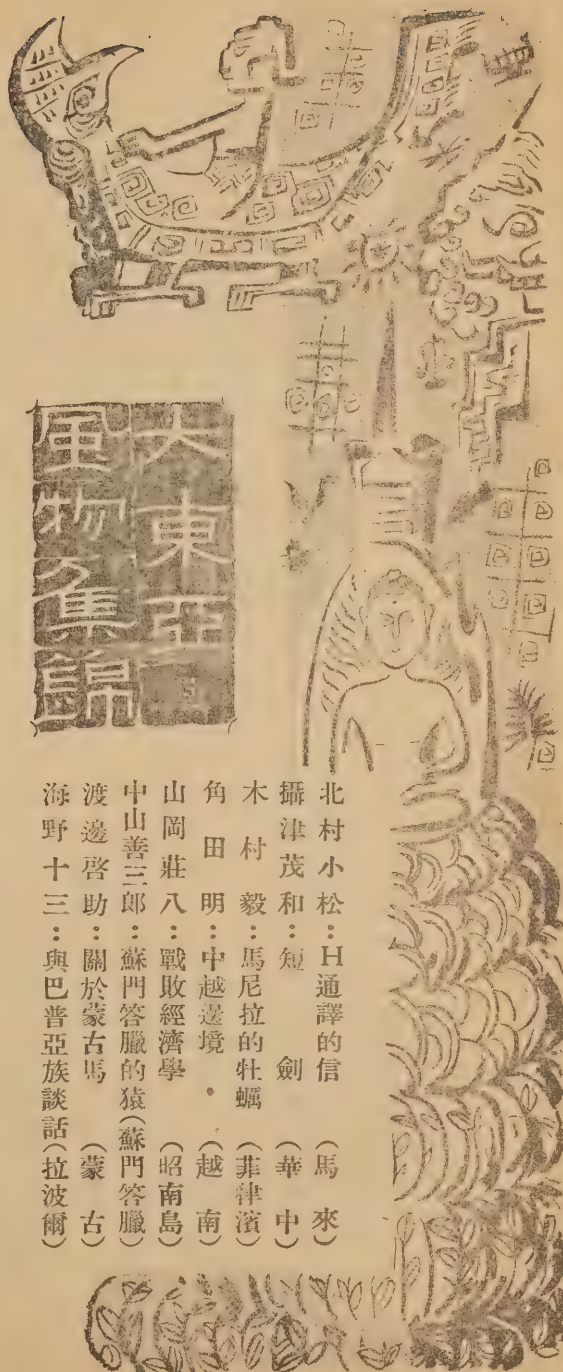 大東亞
風物集錦
北村小松：H通譯的信（馬來）
攝津茂和：短劍（華中）
木村毅：馬尼拉的牡蠣（菲律濱）
角田明：中越邊境（越南）
山岡莊八：戰敗經濟學（昭南島）
中山善三郎：蘇門答臘的猿（蘇門答臘）
渡邊啓助：關於蒙古馬（蒙古）
海野十三：與巴普亞族談話（拉波爾）